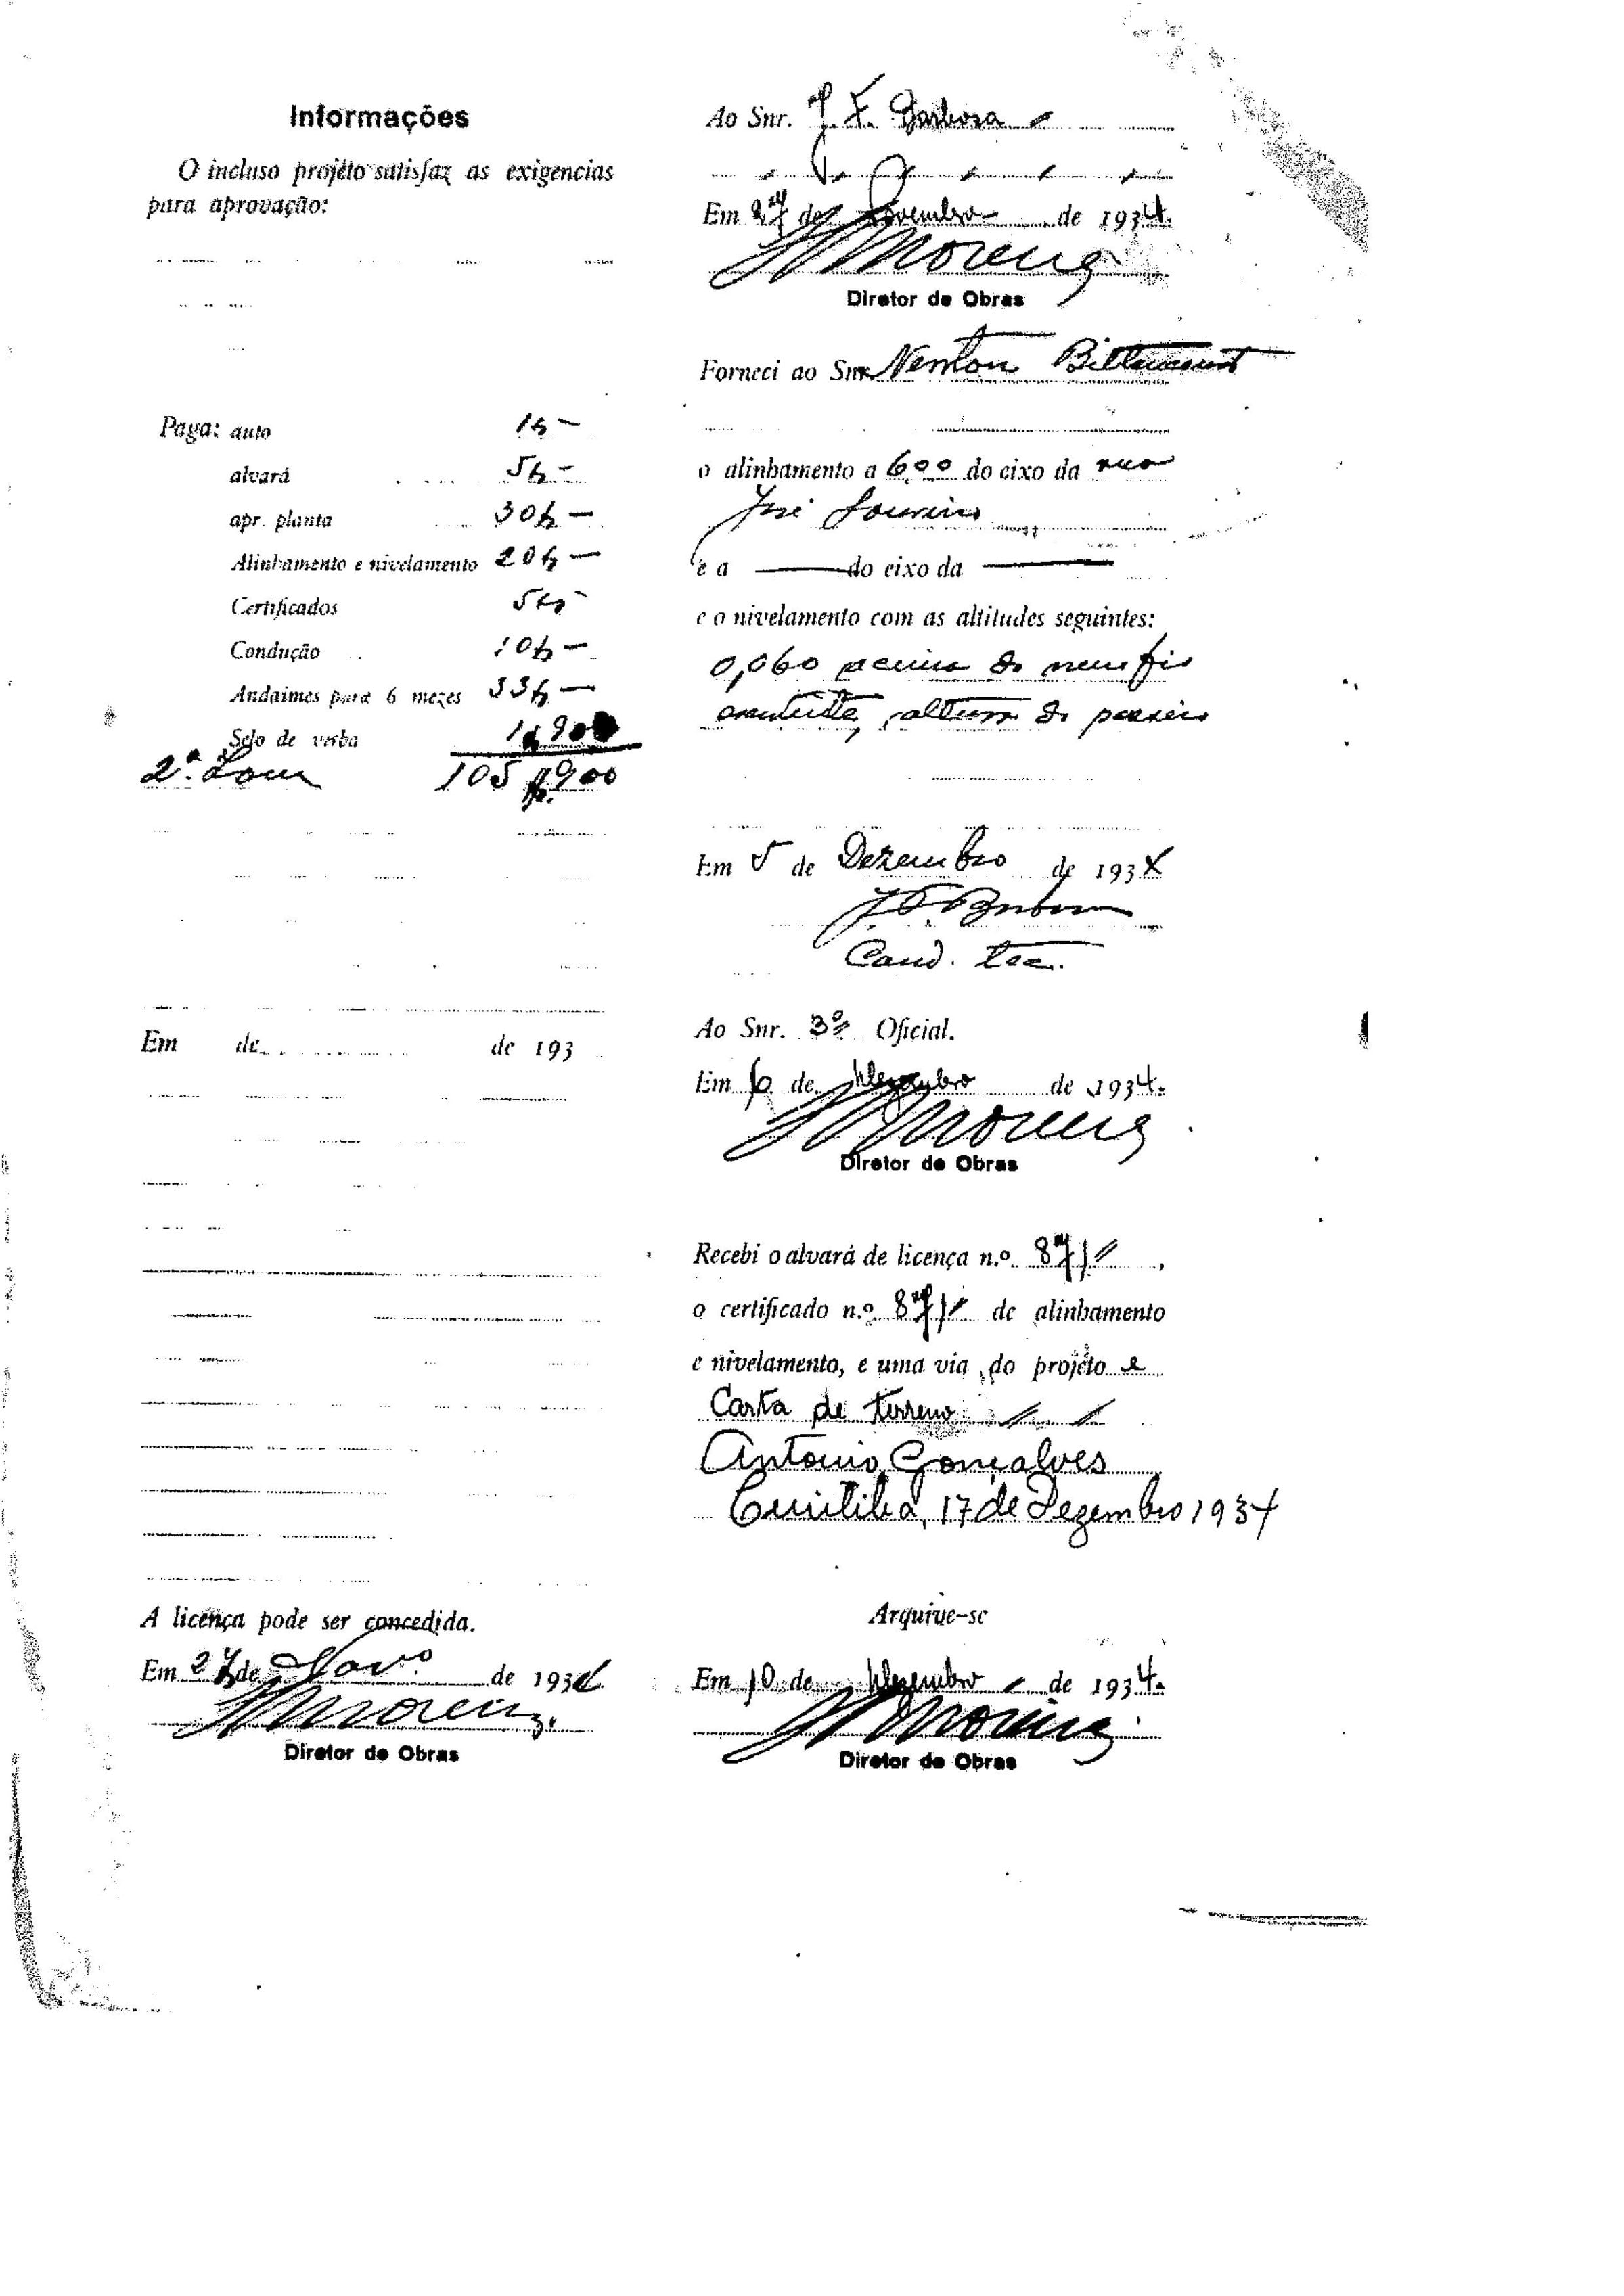 Informações
O incluso projéto satisfaz as exigencias
para aprovação:
Paga: auto 1$—
alvará 5$—
apr. planta 30$—
Alinhamento e nivelamento 20$—
Certificados 5$—
Condução 10$—
Andaimes para 6 mezes 33$—
Selo de verba 1$900
2ª. 105$900
Em de de 193
A licença pode ser concedida.
Em 27 de Novº de 1934
Diretor de Obras
Ao Snr. J. F. Barbosa
Em 27 de Novembro de 1934.
Moreira
Diretor de Obras
Forneci ao Snr. Newton Bittencourt
o alinhamento a 6,00 do eixo da rua
José Loureiro
e a — do eixo da —
e o nivelamento com as altitudes seguintes:
0,060 acima do meu fio
altura do passeio
Em 5 de Dezembro de 1934
Cand. Tec.
Ao Snr. 3º Oficial.
Em 6 de Dezembro de 1934.
Moreira
Diretor de Obras
Recebi o alvará de licença n.º 871,
o certificado n.º 871 de alinhamento
e nivelamento, e uma via do projéto e
Carta de terreno
Antonio Gonçalves
Curitiba, 17 de Dezembro 1934
Arquive-se
Em 10 de Dezembro de 1934.
Moreira
Diretor de Obras